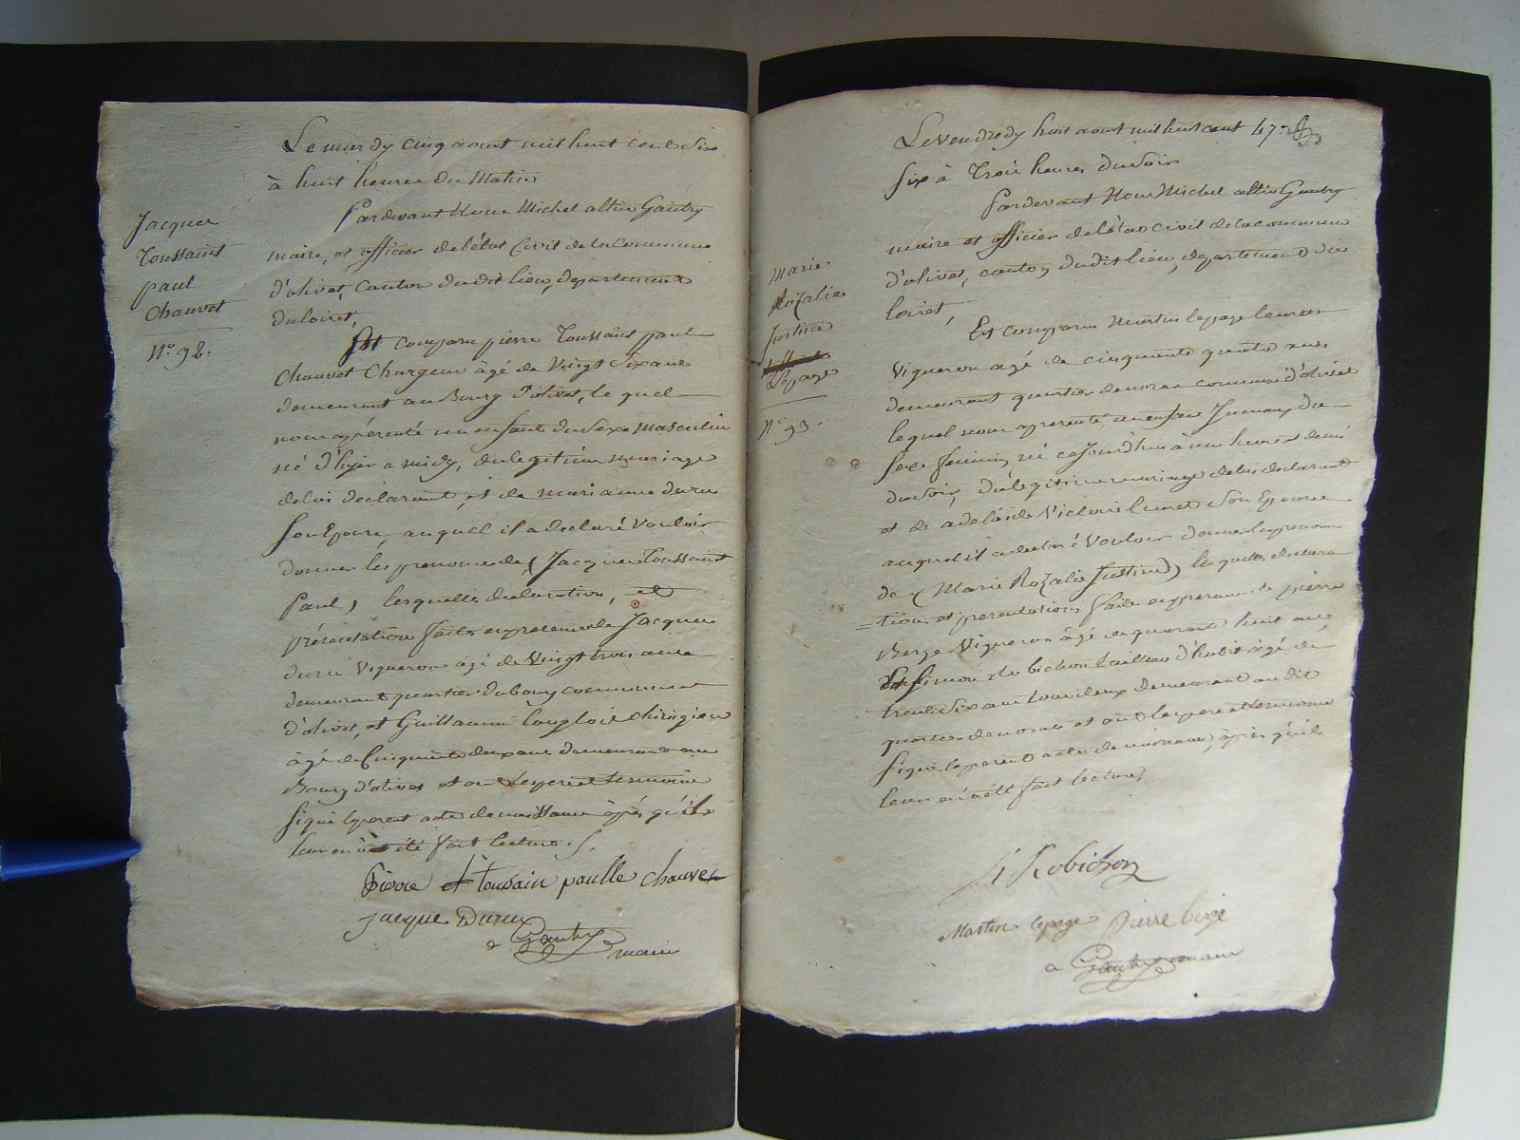 Le mardy cinq aout mil huit cent Six
à huit heures du Matin
Pardevant Nous Michel altin Gautry
maire, et officier de l'état Civil de la Commune
d'olivet, Canton dudit lieu, departement
du loiret,
Jacques
Toussaint
paul
Chauvet
N.o 92.
Est comparu pierre Toussaint paul
Chauvet Chargeur âgé de Vingt Six ans
demeurant au Bourg d'olivet, le quel
nous a présenté un enfant du Sexe Masculin
né d'hyer a midy, du legitime mariage
de lui declarant, et de marianne duru
Son Epouse, auquel il a declaré Vouloir
donner les prenoms de (Jacques Toussaint
Paul) lesquelles declaration, et
présentation faites en presence de Jacques
duru Vigneron âgé de Vingt trois ans
demeurant quartier du bourg commune
d'olivet, et Guillaume Langlois Chirugien
âgé de Cinquante deux ans demeurant au
Bourg d'olivet et ont les pere et temoins
Signé le present acte de naissance après qu'il
leur en a été fait lecture.
Pierre et tousain paulle chauvet
jacque Dureu
a Gautry maire
Le vendredy huit aout mil huit cent 47
Six à Trois heures du Soir
Pardevant Nous Michel altin Gautry
maire et officier de l'état Civil de la commune
d'olivet, canton dudit lieu, departement du
loiret,
Marie
Rozalie
Justine
Lepage
N.o 93.
Est comparu Martin lepage
Vigneron agé de cinquante quatre ans
demeurant quartier commune d'olivet
lequel nous a presenté un enfant Jumeaux du
Sexe feminin, né cejourdhui à une heure et demi
du Soir, du legitime mariage de lui declarant
et de adelaide Victoire Son Epouse
auquel il a declaré Vouloir donner les prenoms
de (Marie Rozalie Justine) lesquelles declara
=tion et presentation faites en presence de pierre
Berge Vigneron âgé de quarante huit ans
Et Simon Robichon tailleur d'habit âgé de
trente Six ans tous deux demeurant au dit
quartier et ont les pere et temoins
Signé le present acte de naissance, après qu'il
leur en a été fait lecture,
Robichon
Martin lepage Pierre berge
a Gautry maire